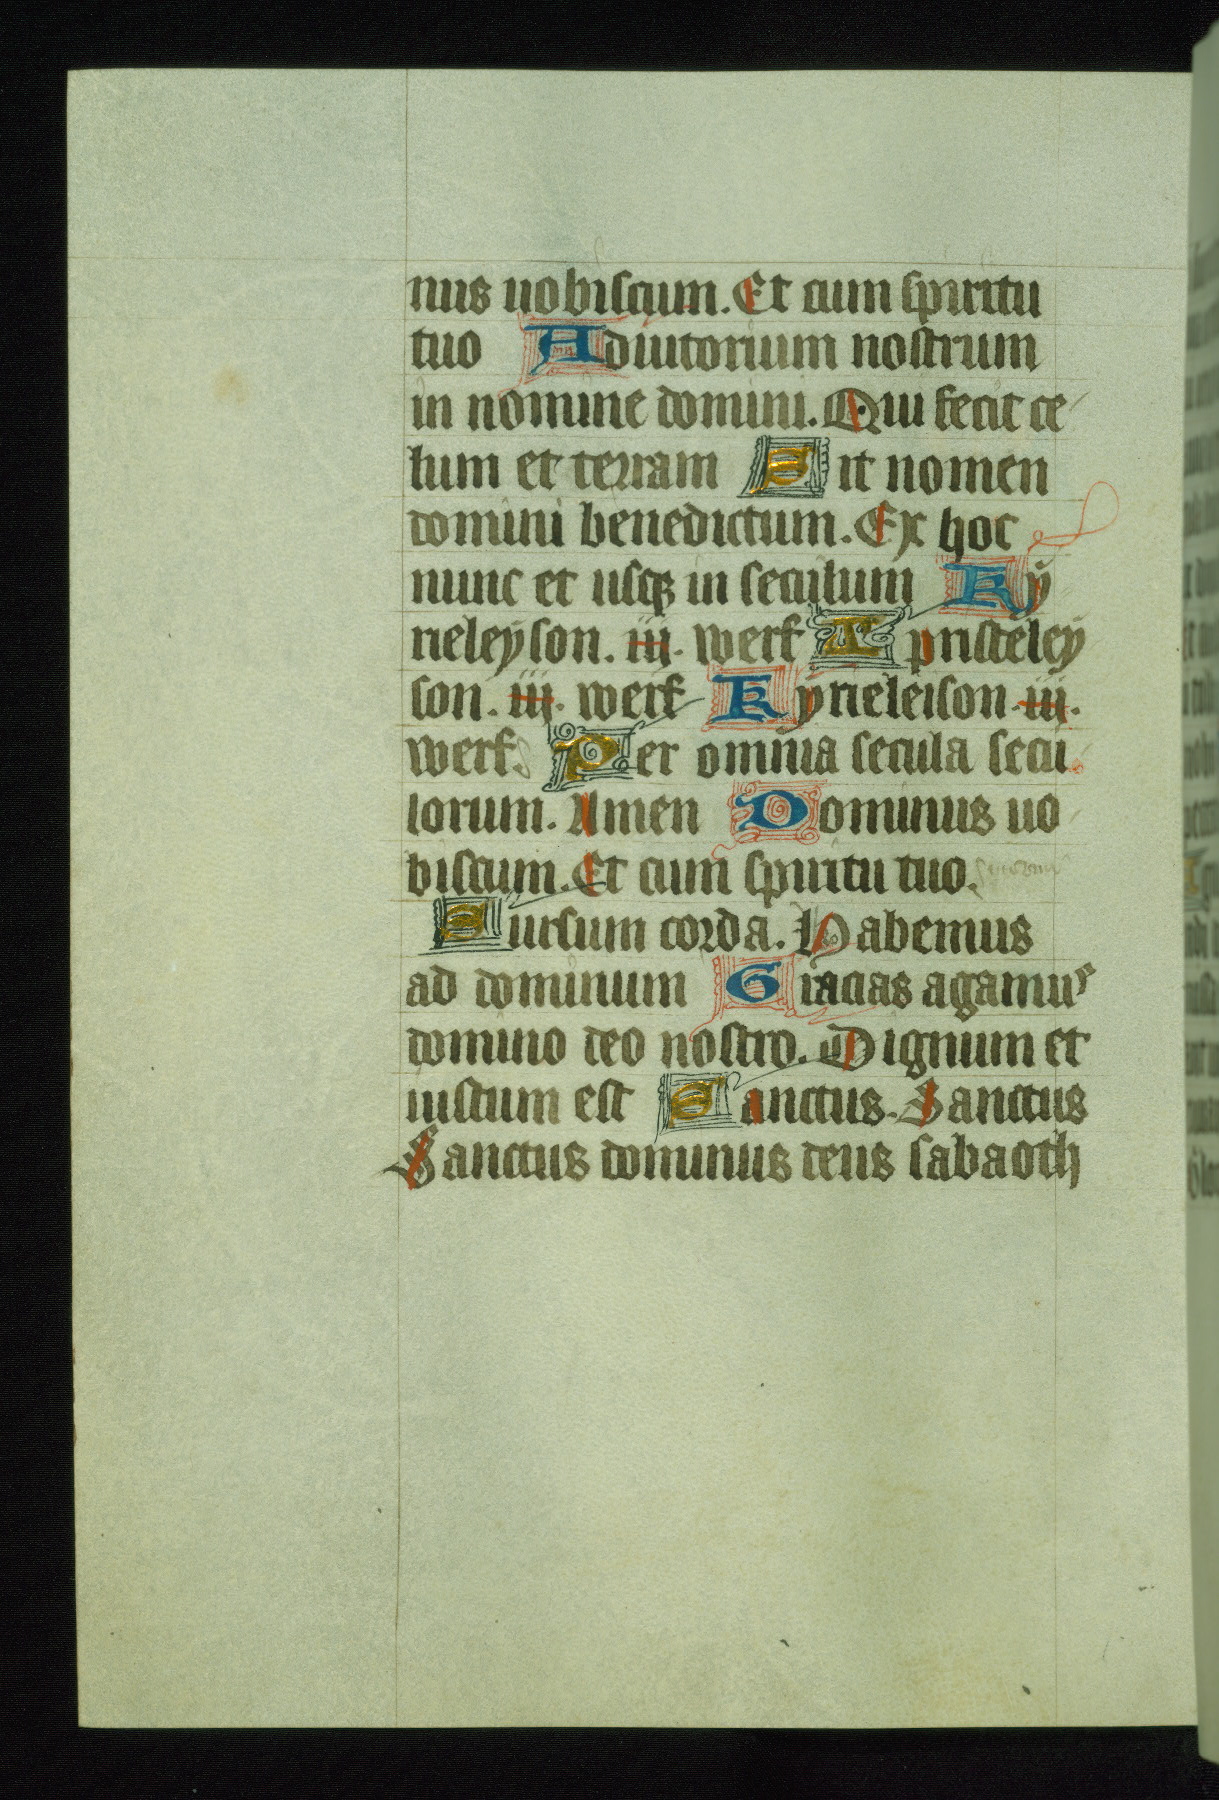 nus uobiscum. Et cum spiritu
tuo Adiutorium nostrum
in nomine domini. Qui fecit ce
lum et terram Sit nomen
domini benedictum. Ex hoc
nunc et usqꝫ in seculum Ky
rieleyson. iij. werf Xpristeley
son. iij. werf Kyrieleison iij.
werf. Per omnia secula secu
lorum. Amen Dominus uo
biscum. Et cum spiritu tuo.
Sursum corda. Habemus
ad dominum Gracias agamus
domino deo nostro. Dignum et
iustum est Sanctus. Sanctus
Sanctus dominus deus sabaoth